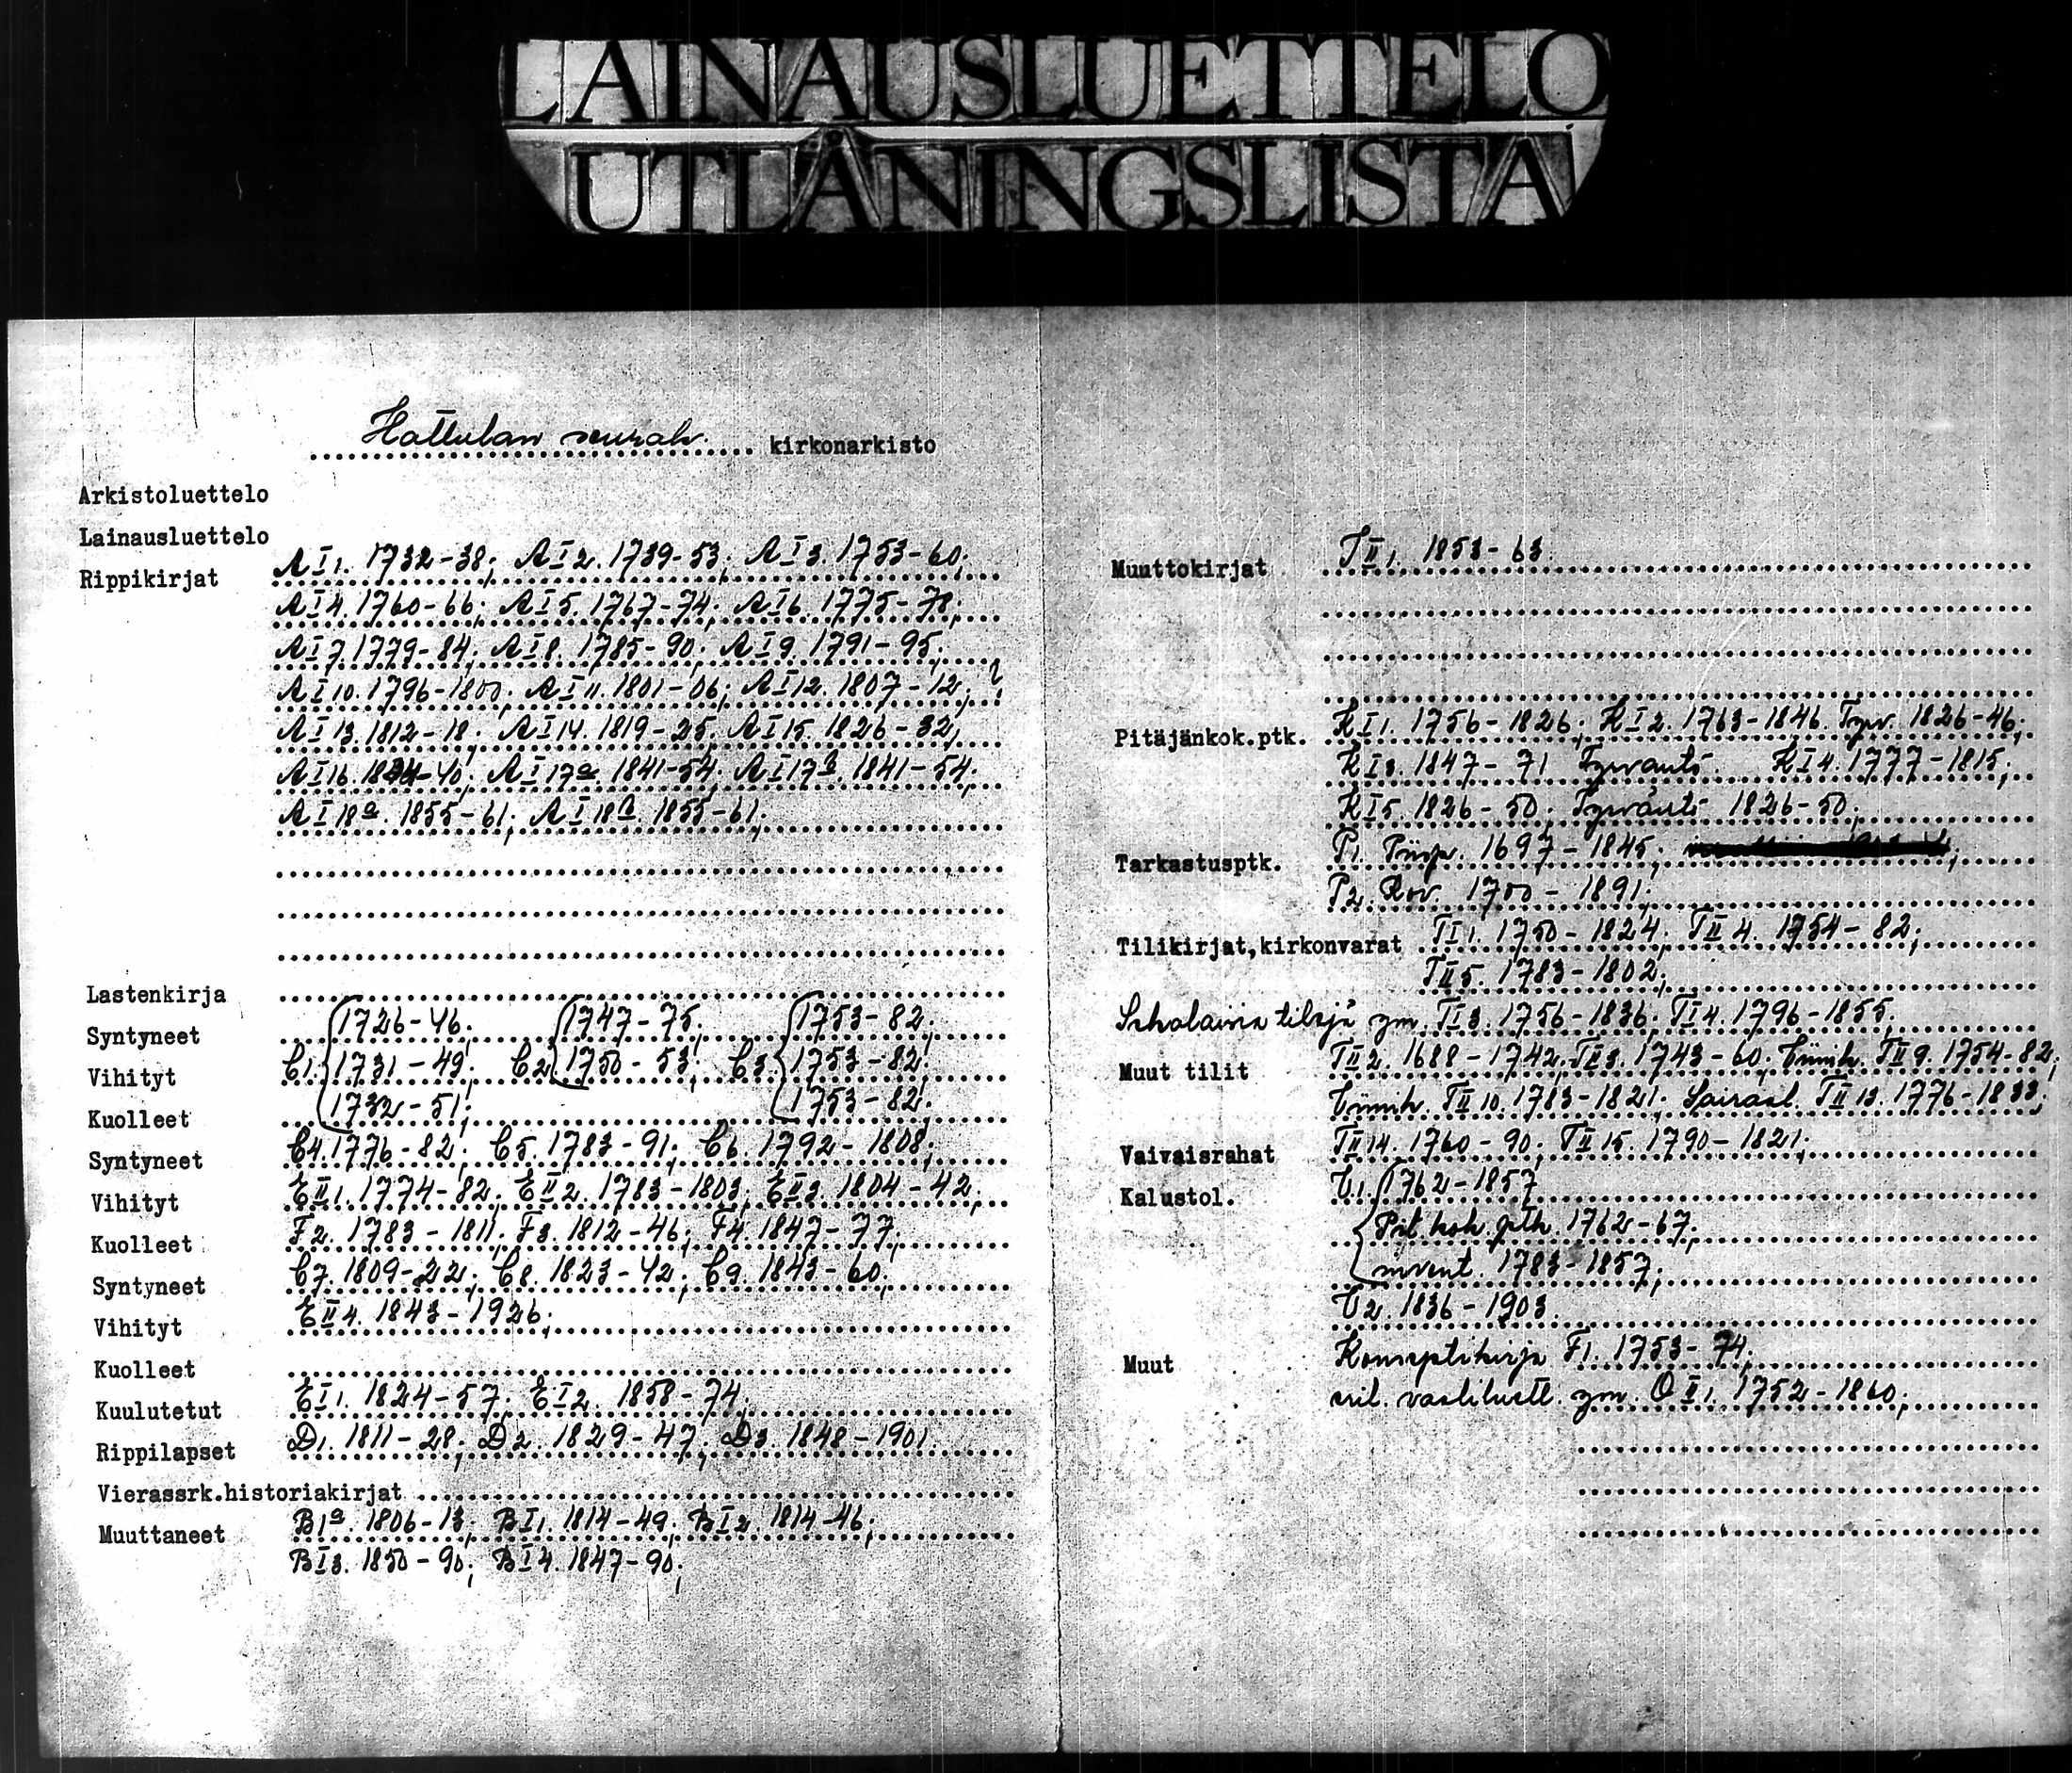 LAINAUSLUETTELO
UTLÅNINGSLISTA
Hattulan seurak. kirkonarkisto
Arkistoluettelo
Lainausluettelo
Rippikirjat A I 1. 1732-38; A I 2. 1739-53; A I 3. 1753-60;
A I 4. 1760-66; A I 5. 1767-74; A I 6. 1775-78;
A I 7. 1779-84; A I 8. 1785-90; A I 9. 1791-95;
A I 10. 1796-1800; A I 11. 1801-06; A I 12. 1807-12;
A I 13. 1812-18; A I 14. 1819-25; A I 15. 1826-32;
A I 16. 1834-40; A I 17a. 1841-54; A I 17b. 1841-54;
A I 18a. 1855-61; A I 18b. 1855-61;
Lastenkirja
Syntyneet 1726-46; 1747-75; 1753-82;
Vihityt C1. 1731-49; C2. 1750-53; C3. 1753-82;
Kuolleet 1732-51; 1753-82;
Syntyneet C4. 1776-82; C5. 1783-91; C6. 1792-1808;
Vihityt E II 1. 1774-82; E II 2. 1783-1803; E II 3. 1804-42;
Kuolleet F2. 1783-1811; F3. 1812-46; F4. 1847-77;
Syntyneet C7. 1809-22; C8. 1823-42; C9. 1843-60;
Vihityt E II 4. 1843-1926;
Kuolleet
Kuulutetut E I 1. 1824-57; E I 2. 1858-74;
Rippilapset D1. 1811-28; D2. 1829-47; D3. 1848-1901.
Vierassrk.historiakirjat
Muuttaneet B1a. 1806-13; B I 1. 1814-49; B I 2. 1814-46;
B I 3. 1850-90; B I 4. 1847-90;
Muuttokirjat T II 1. 1853-63.
Pitäjänkok.ptk. K I 1. 1756-1826; K I 2. 1763-1846. Tyrv. 1826-46;
K I 3. 1847-71 Tyrväntö. K I 4. 1777-1815;
K I 5. 1826-50; Tyrväntö 1826-50;
Tarkastusptk. P1. Piisp. 1697-1845;
P2. Rov. 1700-1891;
Tilikirjat,kirkonvarat T I 1. 1750-1824; T II 4. 1754-82;
T II 5. 1783-1802;
Sekalaisia tilejä ym. T I 3. 1756-1836; T I 4. 1796-1855.
Muut tilit T II 2. 1688-1742; T II 3. 1743-60; T II 9. 1754-82;
T II 10. 1783-1821; Sairaal. T II 13. 1776-1833;
Vaivaisrahat T II 14. 1760-90; T II 15. 1790-1821;
Kalustol. U1. 1762-1857
Pit.kok.ptk. 1762-67;
invent. 1783-1857;
U2. 1836-1903.
Muut Konseptikirja F1. 1753-74;
ym. O II 1. 1752-1860;